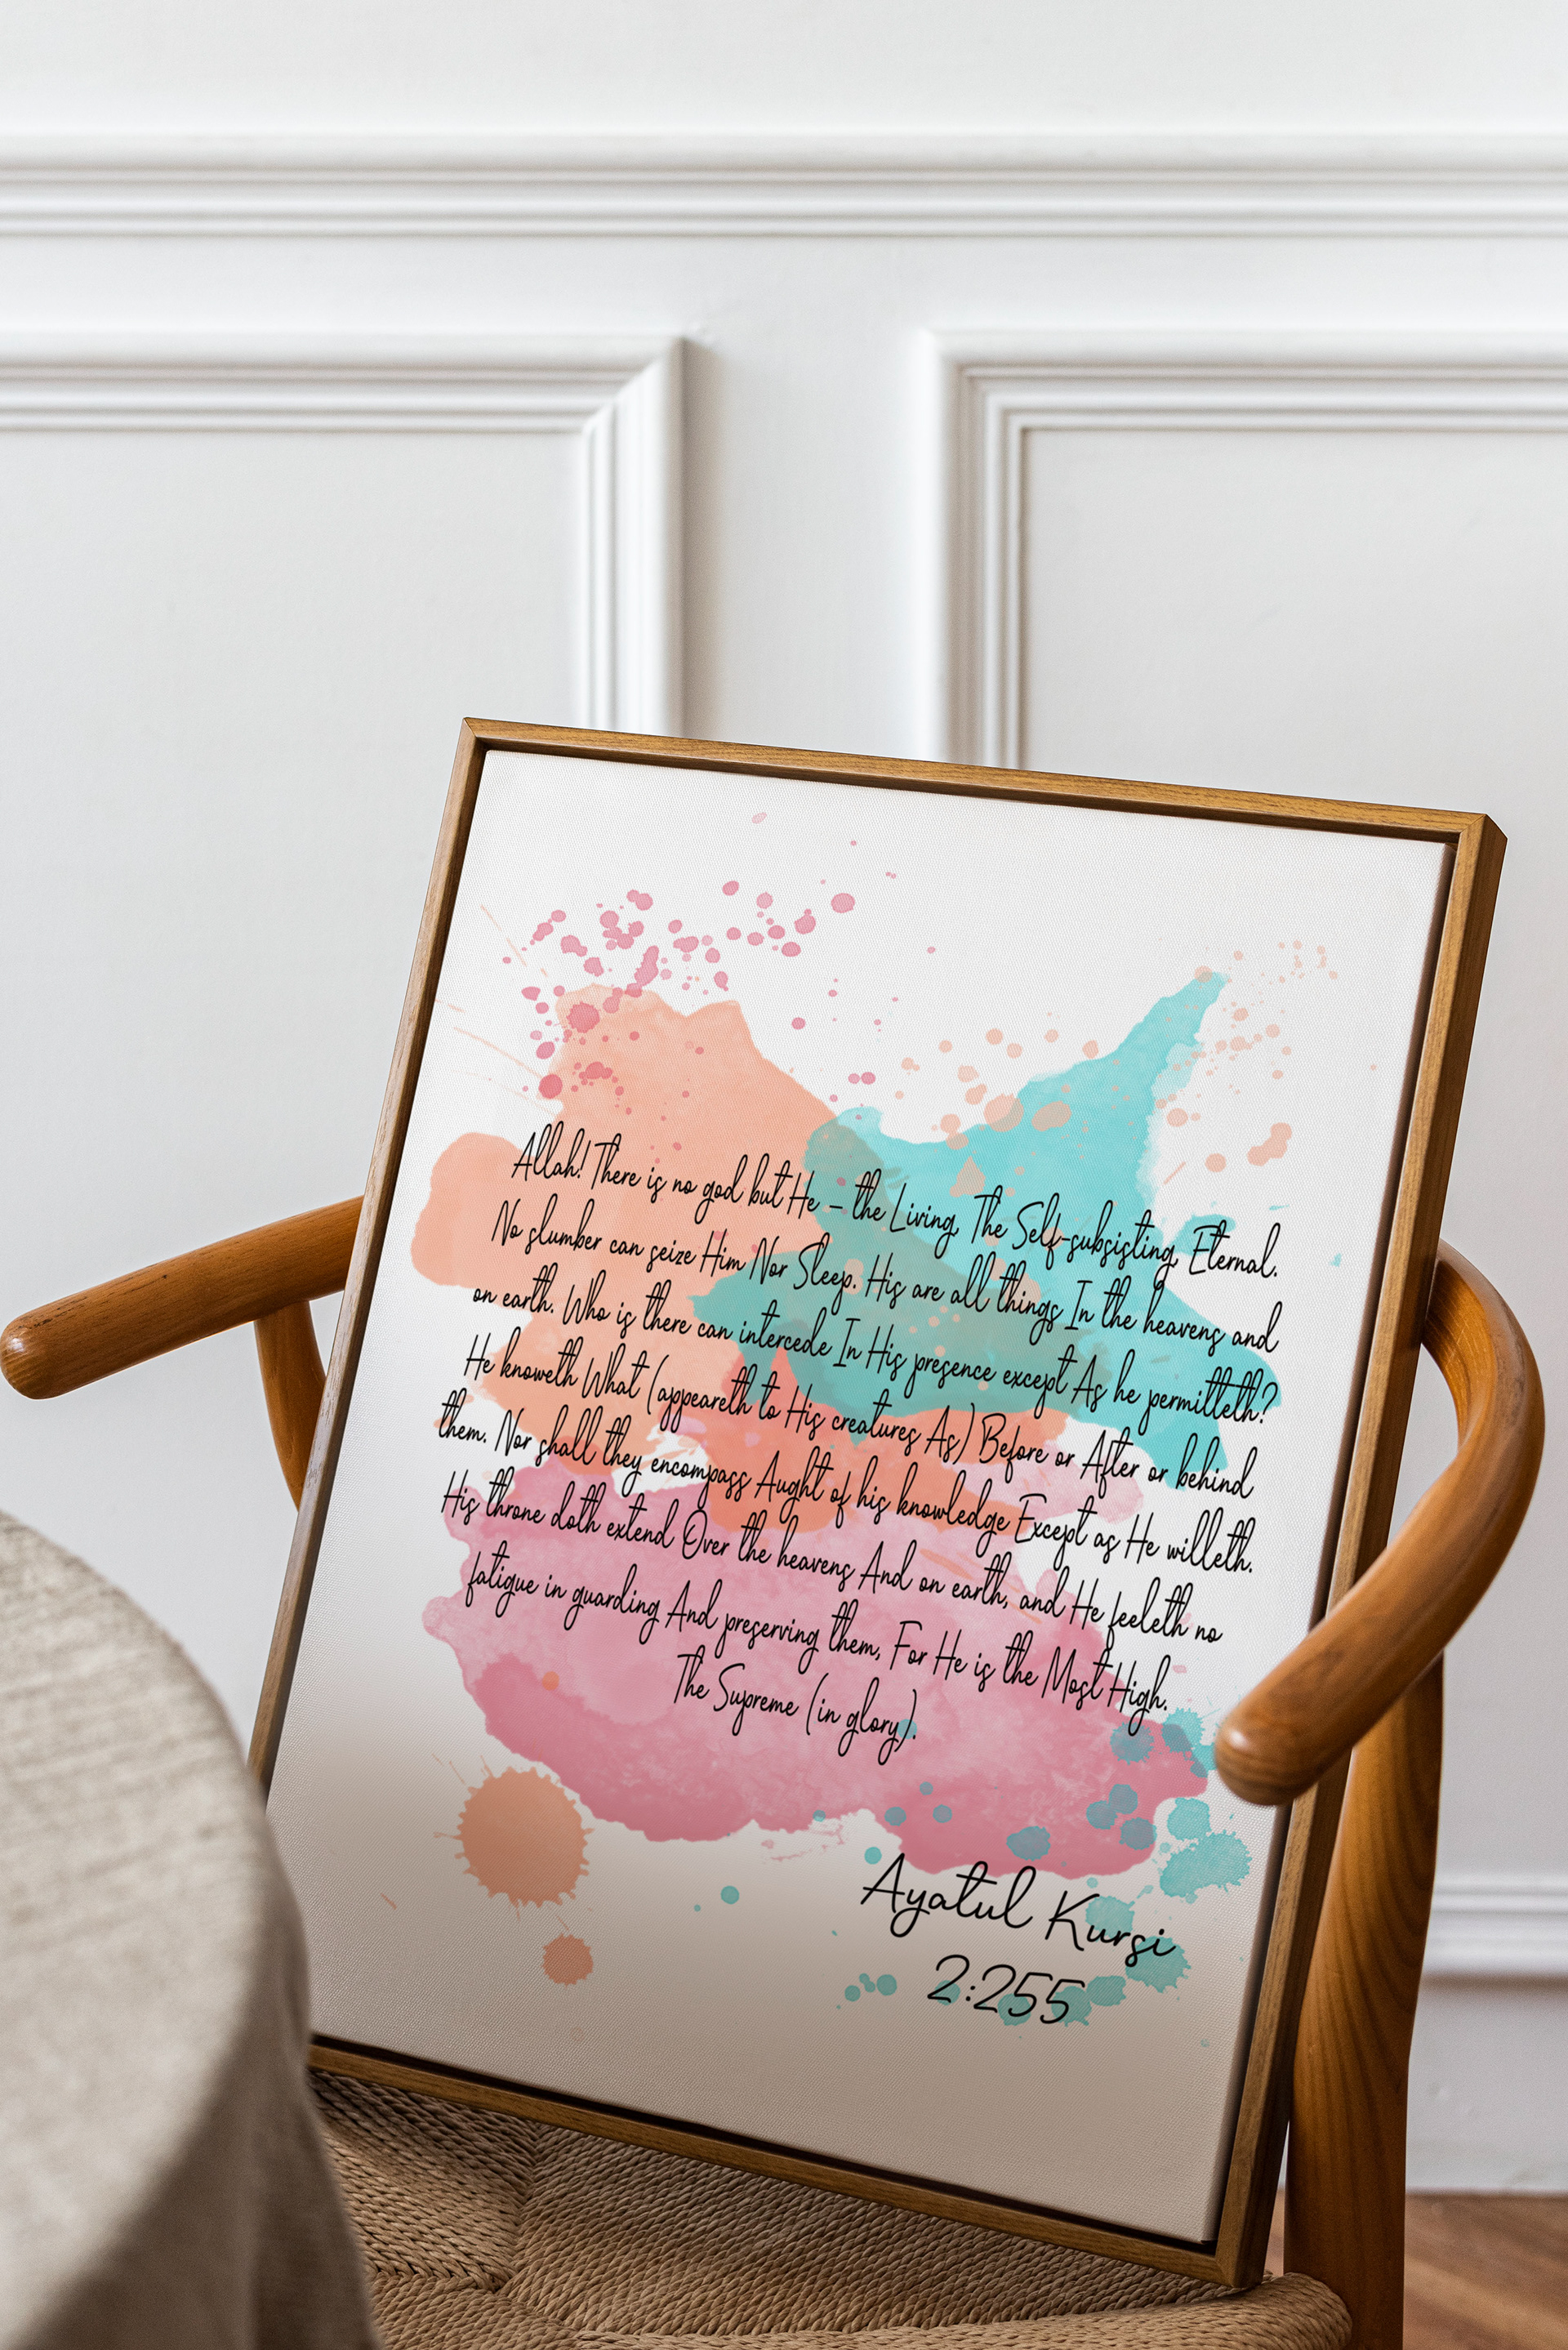 Allah! There is no god but He – the Living, The Self-subsisting, Eternal.
No slumber can seize Him Nor Sleep. His are all things In the heavens and
on earth. Who is there can intercede In His presence except As he permitteth?
He knoweth What (appeareth to His creatures As) Before or After or behind
them. Nor shall they encompass Aught of his knowledge Except as He willeth.
His throne doth extend Over the heavens And on earth, and He feeleth no
fatigue in guarding And preserving them, For He is the Most High.
The Supreme (in glory).
Ayatul Kursi
2:255